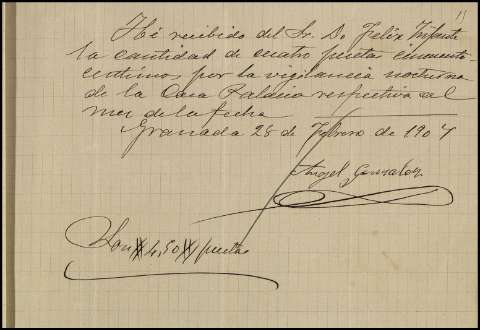 11
Hé recibido del Sr. D. Felix Infante
la cantidad de cuatro pesetas cincuenta
centimos por la vigilancia nocturna
de la Casa Palacio respectiva al
mes de la fecha
Granada 28 de Febrero de 1907
Angel Gonzalez
Son # 4,50 # pesetas